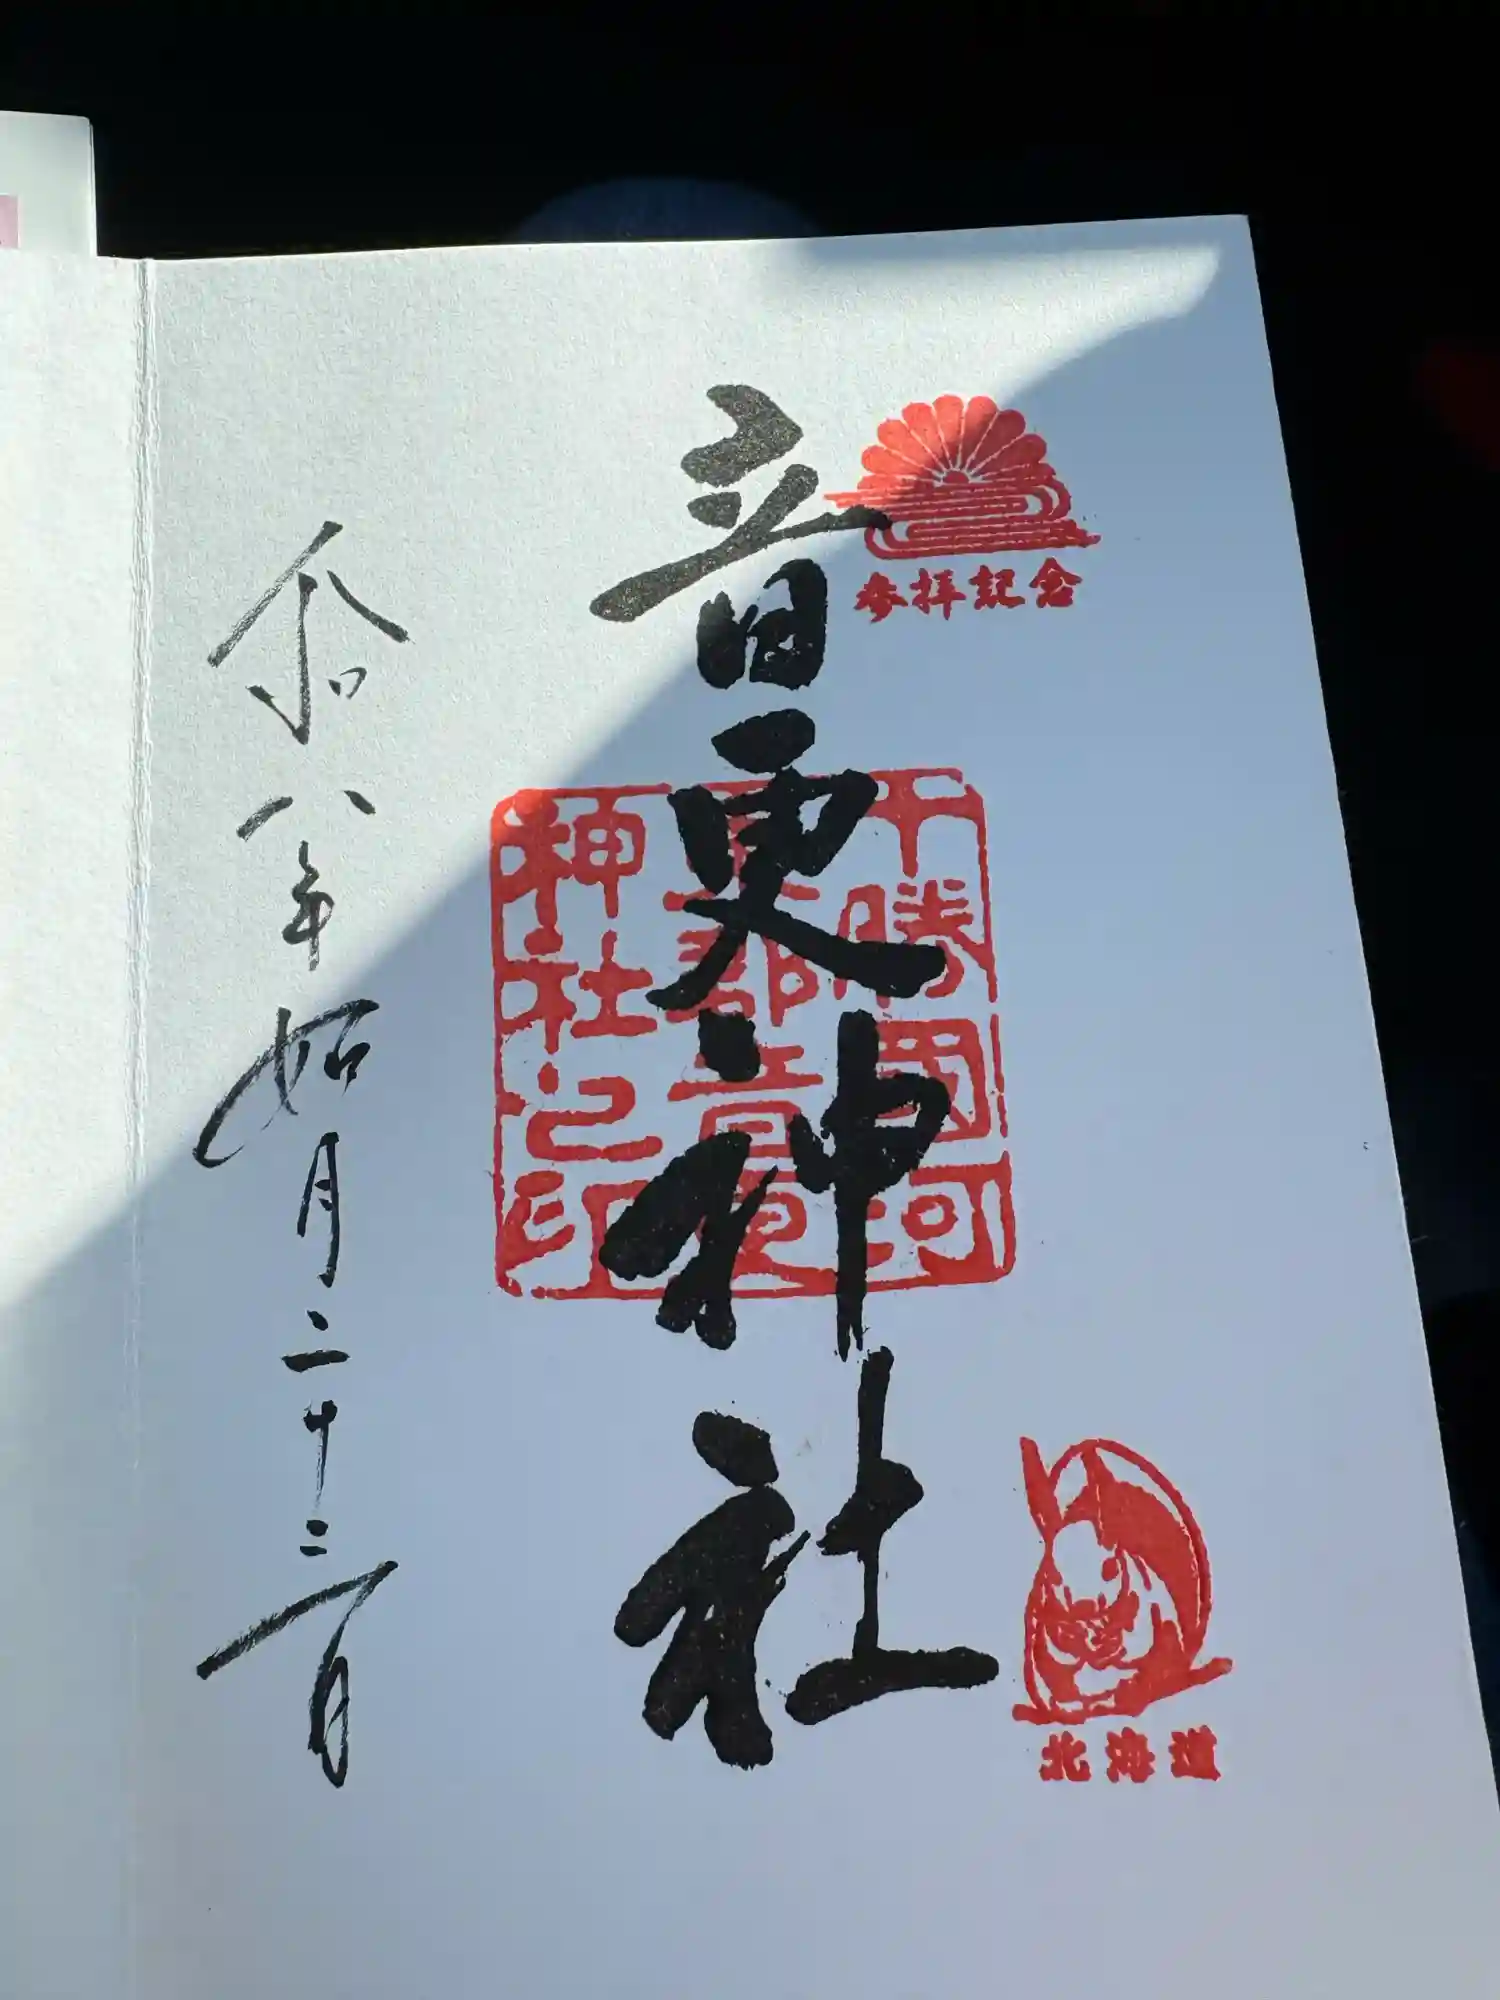 参拝記念
音更神社
十勝國河
東郡音更
神社之印
北海道
令和八年如月二十三日